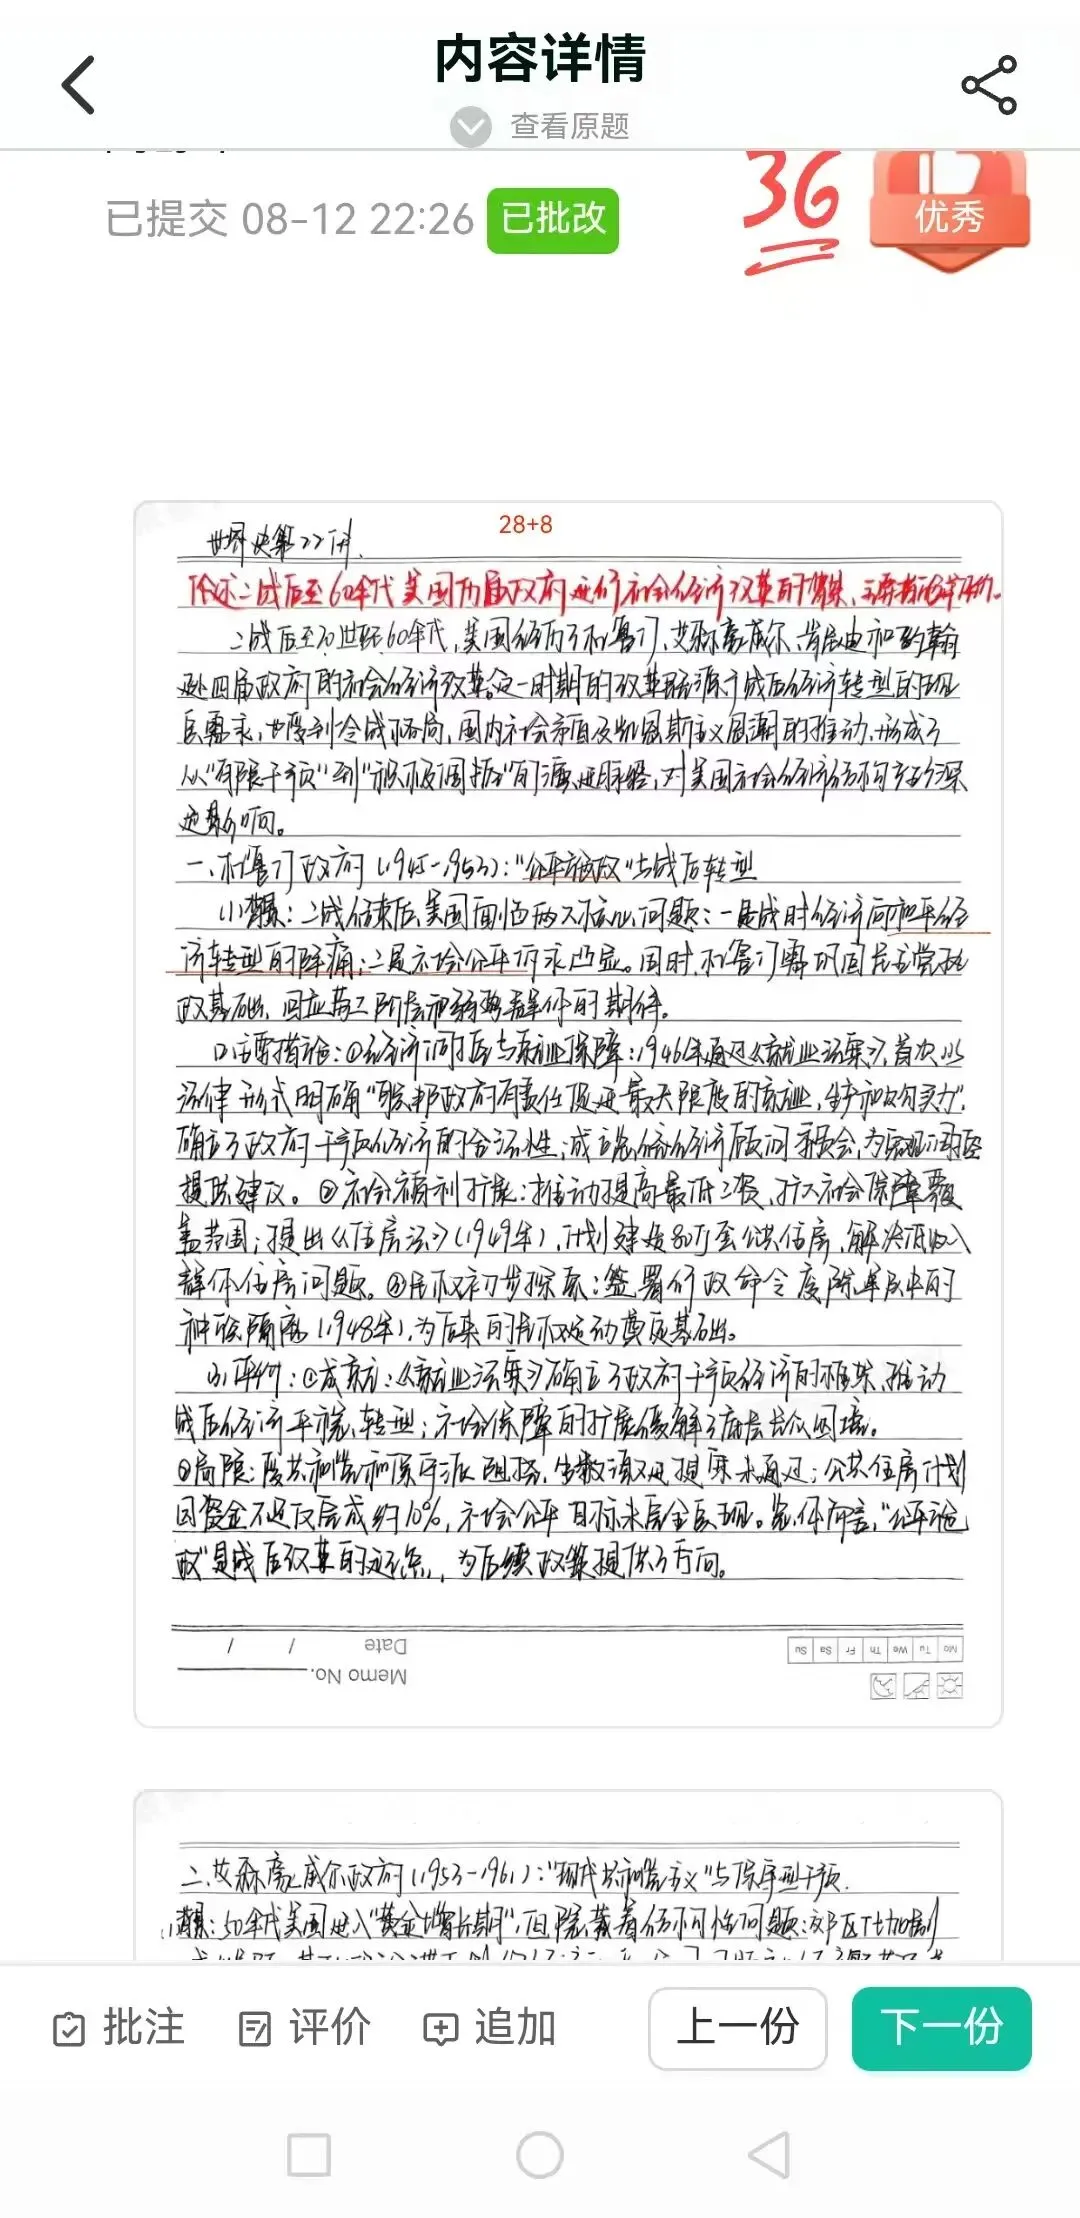 内容详情
查看原题
已提交 08-12 22:26 已批改
36
优秀
28+8
世界史第22讲.
论述二战后至60年代美国历届政府进行社会经济改革的背景、主要措施和评价.
二战后至20世纪60年代,美国经历了杜鲁门、艾森豪威尔、肯尼迪和约翰
逊四届政府的社会经济改革。这一时期的改革既源于战后经济转型的现
实需求,也受到冷战格局、国内社会矛盾及凯恩斯主义思潮的推动,形成了
从“有限干预”到“积极调控”的演进脉络,对美国社会经济结构产生深
远影响。
一、杜鲁门政府(1945-1953):“公平施政”与战后转型
(1)背景:二战结束后,美国面临两大核心问题:一是战时经济向和平经
济转型的阵痛;二是社会公平诉求凸显。同时,杜鲁门需巩固民主党执
政基础,回应劳工阶层和弱势群体的期待。
(2)主要措施:①经济调控与就业保障:1946年通过《就业法案》,首次以
法律形式明确“联邦政府有责任促进最大限度的就业、生产和购买力”,
确立了政府干预经济的合法性;成立总统经济顾问委员会,为宏观调控
提供建议。②社会福利扩展:推动提高最低工资、扩大社会保障覆
盖范围;提出《住房法》(1949年),计划建造80万套公共住房,解决低收入
群体住房问题。③民权初步探索:签署行政命令废除军队中的
种族隔离(1948年),为后来的民权运动奠定基础。
(3)评价:①成就:《就业法案》确立了政府干预经济的框架,推动
战后经济平稳转型;社会保障的扩展缓解了底层民众困境。
②局限:受共和党和保守派阻挠,多数激进提案未通过;公共住房计划
因资金不足仅完成约10%,社会公平目标未完全实现。总体而言,“公平施
政”是战后改革的延续,为后续政策提供了方向。
Date / /
Memo No.
Mo Tu We Th Fr Sa Su
二、艾森豪威尔政府(1953-1961):“现代共和党主义”与保守型干预.
(1)背景:50年代美国进入“黄金增长期”,但隐藏着结构性问题:郊区化加剧
批注
评价
追加
上一份
下一份